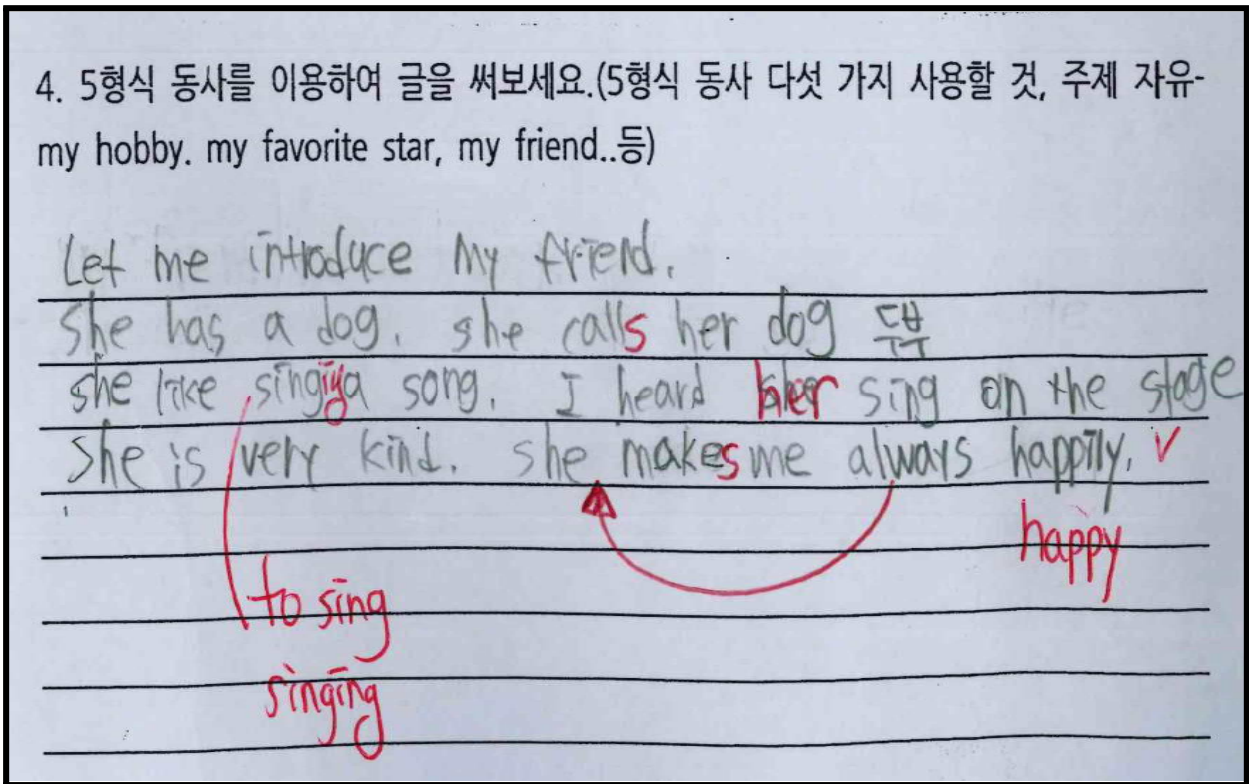 4. 5형식 동사를 이용하여 글을 써보세요.(5형식 동사 다섯 가지 사용할 것, 주제 자유-
my hobby. my favorite star, my friend..등)
Let me introduce my friend.
She has a dog. she calls her dog 두부
she like singing a song. I heard her sing on the stage
She is very kind. she makes me always happily. v
happy
to sing
singing